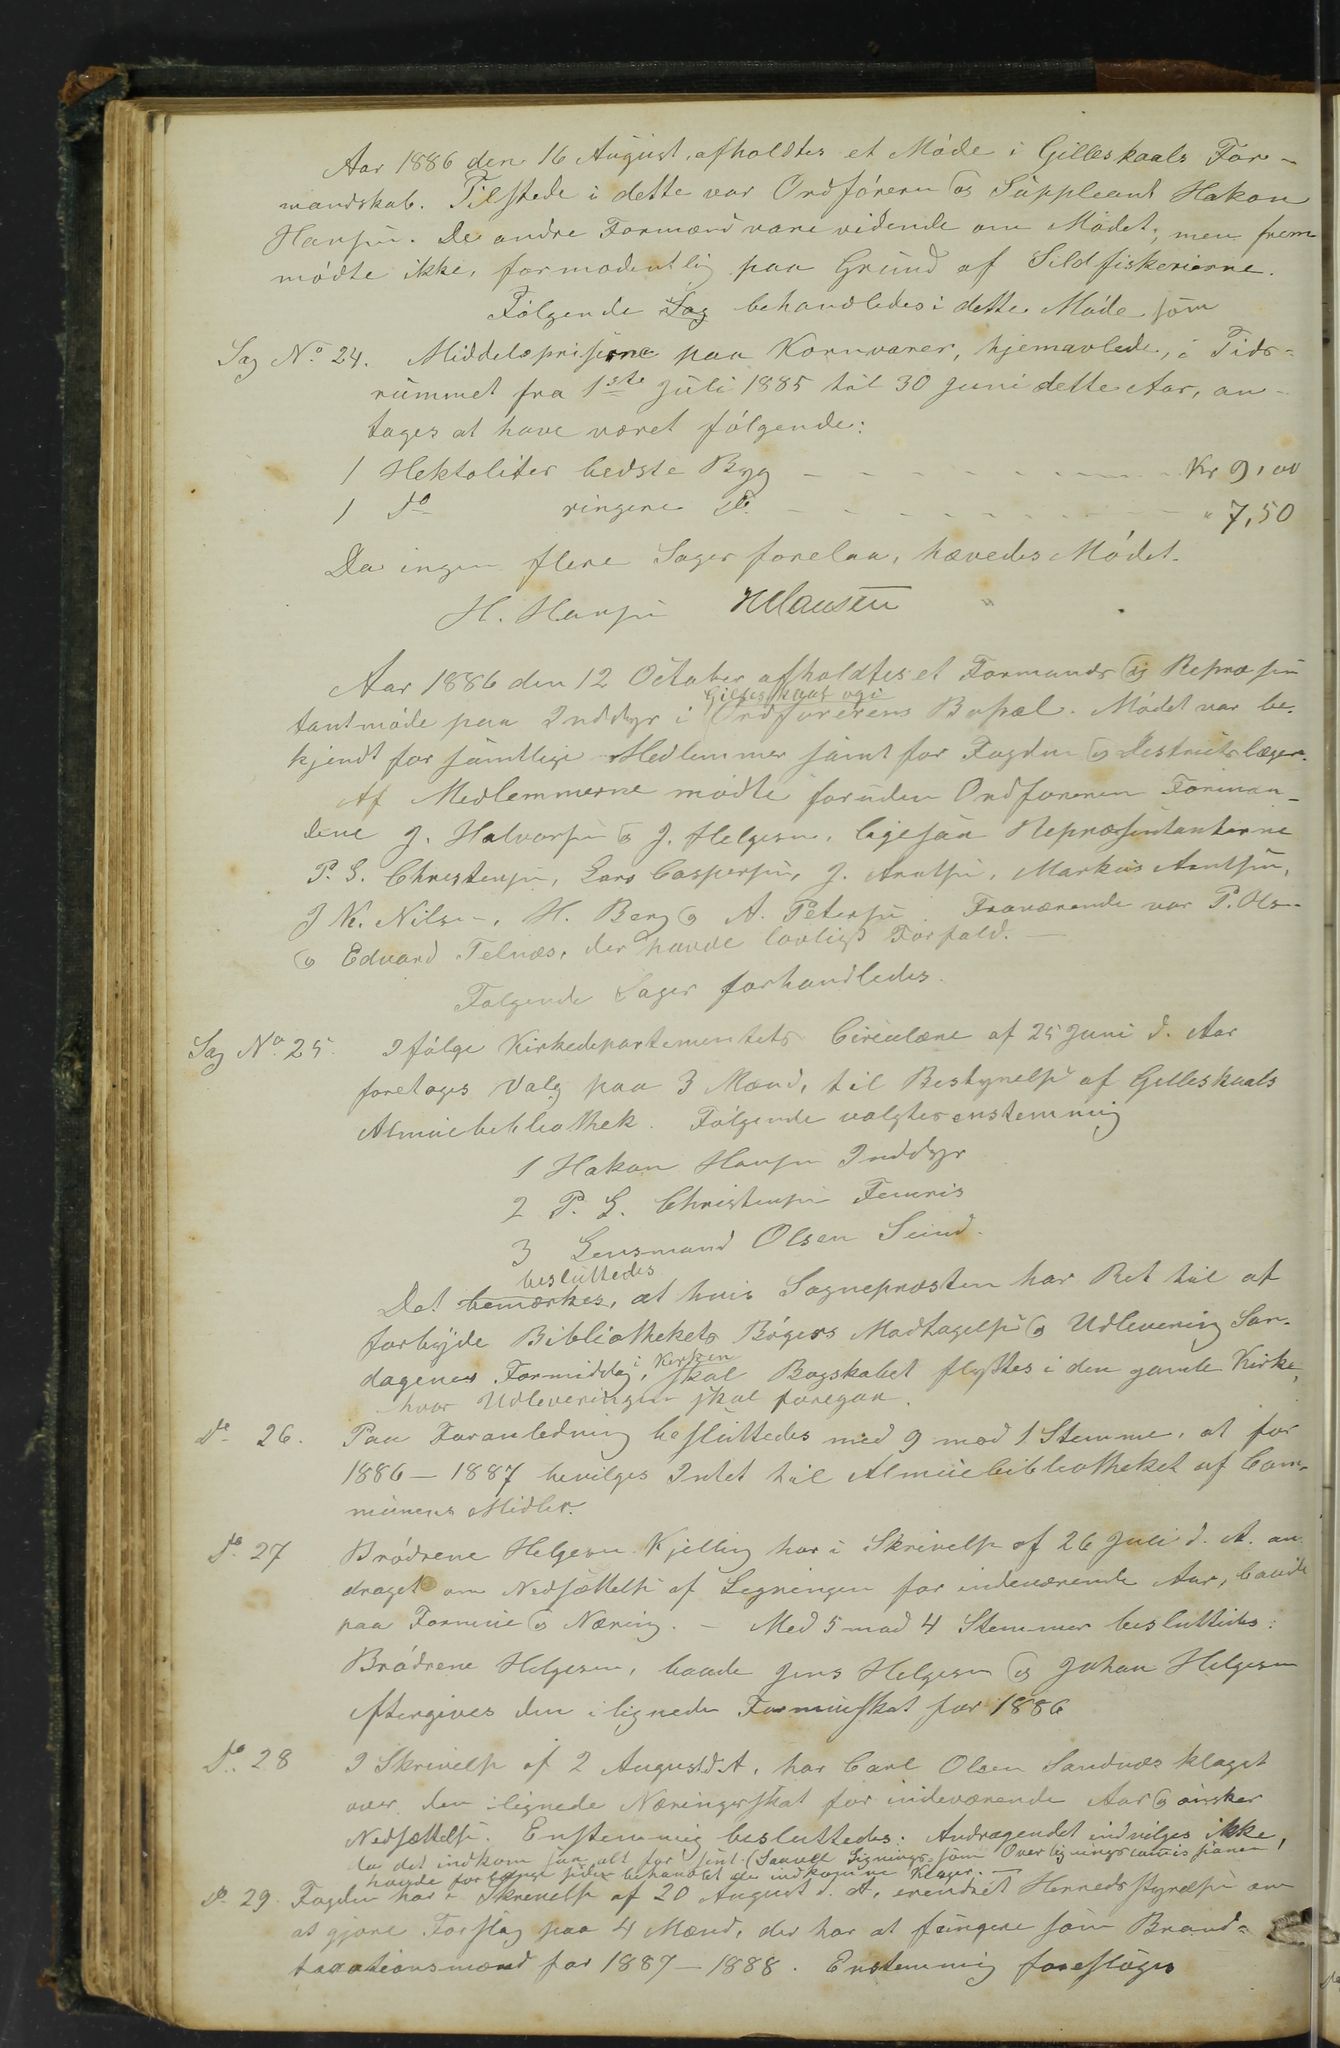 Aar 1886 den 16 August, afholdtes et Møde i Gilleskaals For-
mandskab. Tilstede i dette var Ordføreren og Suppleant Hakon
Hansen. De andre Formænd vare vidende om Mødet, men frem
mødte ikke, formodentlig paa Grund af Sildfiskerierne.
Følgende Sag behandledes i dette Møde som
Sag No 24. Middelspriserne paa Kornvarer, hjemavlede, i Tids-
rummet fra 1ste Juli 1885 til 30 Juni dette Aar, an-
tages at have været følgende:
1 Hektoliter bedste Byg - - - Kr 9,00
1 do ringere do. - - - " 7,50
Da ingen flere Sager forelaa, hævedes Mødet.
H. Hansen HClausen
Aar 1886 den 12 October afholdtes et Formands og Repræsen
Gilleskaal ogi
tantmøde paa Inddyr i Ordførerens Bopæl. Mødet var be-
kjendt for samtlige Medlemmer samt for Fogden og Destrictslægen.
Af Medlemmerne mødte foruden Ordføreren Forman-
dene J. Halvorsen og J. Helgesen, ligesaa Repræsentanterne
P. G. Christensen, Lars Caspersen, J. Arntsen, Markus Arntsen,
J K. Nilsen, H. Berg og A. Petersen. Fraværende var P. Olsen
og Edvard Telnæs, der havde lovligt Forfald. -
Følgende Sager forhandledes.
Sag No. 25. Ifølge Kirkedepartementets Circulære af 25 Juni d. Aar
foretoges Valg paa 3 Mænd, til Bestyrelse af Gilleskaals
Almuebibliothek. Følgende valgtes enstemmig
1 Hakon Hansen Inddyr
2 P. G. Christensen Femris
3 Lensmand Olsen Sund.
besluttedes
Det bemærkes, at hvis Sognepræsten har Ret til at
forbyde Bibliothekets Bøgers Modtagelse og Udlevering Søn-
dagenes Formiddag, i Kirken skal Bogskabet flyttes i den gamle Kirke,
hvor Udleveringen skal foregaa.
do 26. Paa Foranledning besluttedes med 9 mod 1 Stemme, at for
1886 - 1887 bevilges Intet til Almuebibliotheket af Com-
munens Midler.
do. 27 Brødrene Helgesen Kjelling har i Skrivelse af 26 Juli d. A. an
draget om Nedsættelse af Ligningen for indeværende Aar, baade
paa Formue og Næring. - Med 5 mod 4 Stemmer besluttedes:
Brødrene Helgesen, baade Jens Helgesen og Johan Helgesen
eftergives den ilignede Formueskat for 1886
do. 28 I Skrivelse af 2 August d. A. har Carl Olsen Sandnæs klaget
over den ilignede Næringsskat for indeværende Aar og ønsker
Nedsættelse. Enstemmig besluttedes: Andragendet indvilges ikke,
da det indkom saa alt for sent (Saavel Lignings- som Overligningscommissionen,
havde for længe siden behandlet de indkomne Klager. -
do 29. Fogden har i Skrivelse af 20 August d. A. erindret Herredsstyrelsen om
at gjøre Forslag paa 4 Mænd, der har at fungere som Brand-
taxationsmænd for 1887 - 1888. Enstemmig foreslages